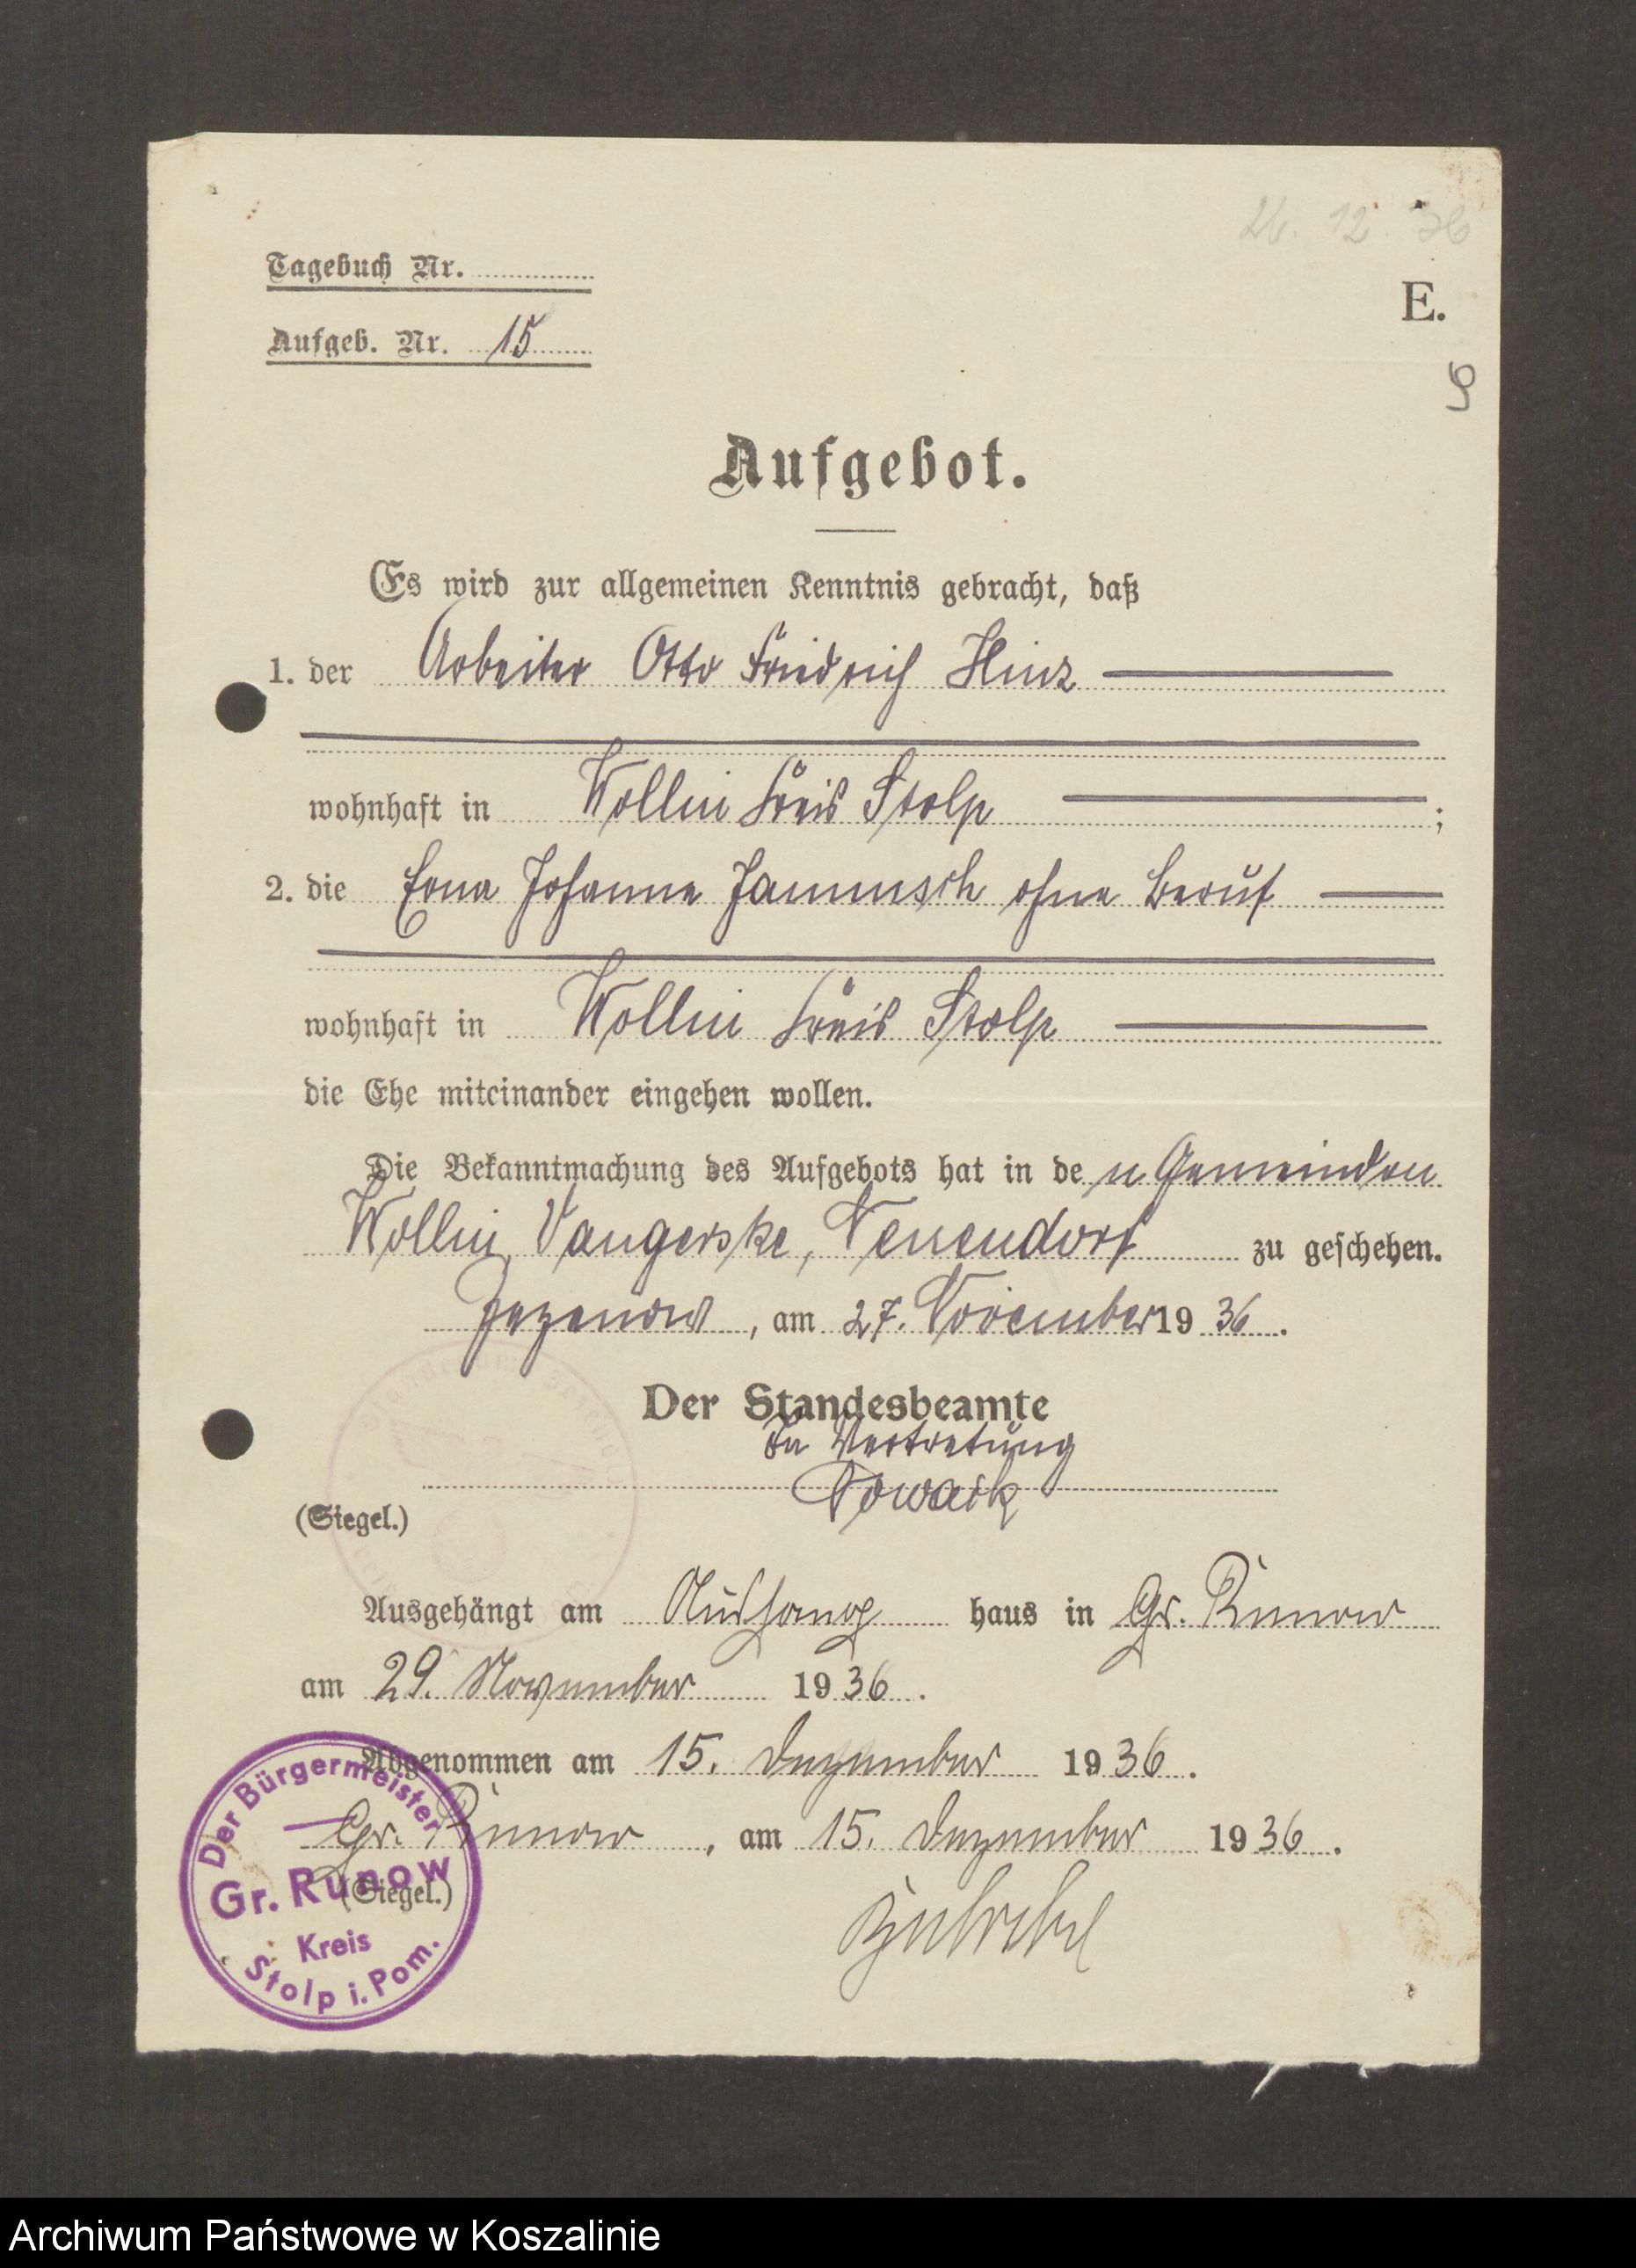 26. 12. 36
Tagebuch Nr.
E.
Aufgeb. Nr. 15
9
Aufgebot.
Es wird zur allgemeinen Kenntnis gebracht, daß
1. der Arbeiter Otto Friedrich Hinz
wohnhaft in Wollin Kreis Stolp ;
2. die Erna Johanna Jannusch ohne Beruf
wohnhaft in Wollin Kreis Stolp
die Ehe miteinander eingehen wollen.
Die Bekanntmachung des Aufgebots hat in den Gemeinden
Wollin, Vangerske, Neuendorf zu geschehen.
Zezenow, am 27. November 1936.
Der Standesbeamte
In Vertretung
Nowack
(Siegel.)
Ausgehängt am Aushang haus in Gr. Runow
am 29. November 1936.
Abgenommen am 15. Dezember 1936.
Gr. Runow, am 15. Dezember 1936.
(Siegel.)
Der Bürgermeister
Gr. Runow
Kreis
Stolp i. Pom.
Archiwum Państwowe w Koszalinie